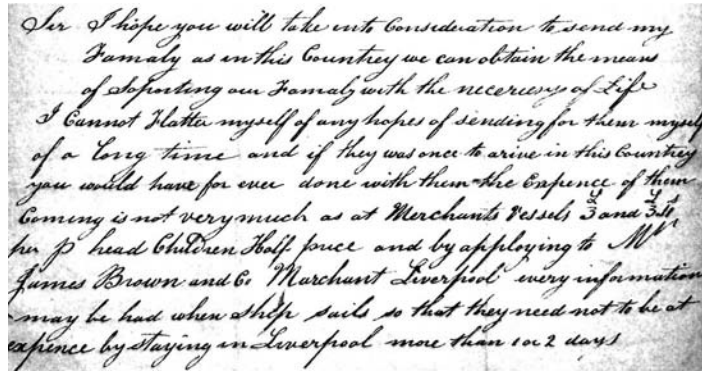 Sir I hope you will take into Consideration to send my
Famaly as in this Countrey we can obtain the means
of Soporting our Famaly with the necerisey of Life
I Cannot Flatter myself of any hopes of sending for them myself
of a Long time and if they was once to arive in this Countrey
you would have for ever done with them the Expence of them
Coming is not very much as at Merchants Vessels and
per head Children Half price and by apploying to Mr
James Brown and Co Marchant Liverpool every information
may be had when ship sails so that they need not to be at
expence by staying in Liverpool more than 1 or 2 days